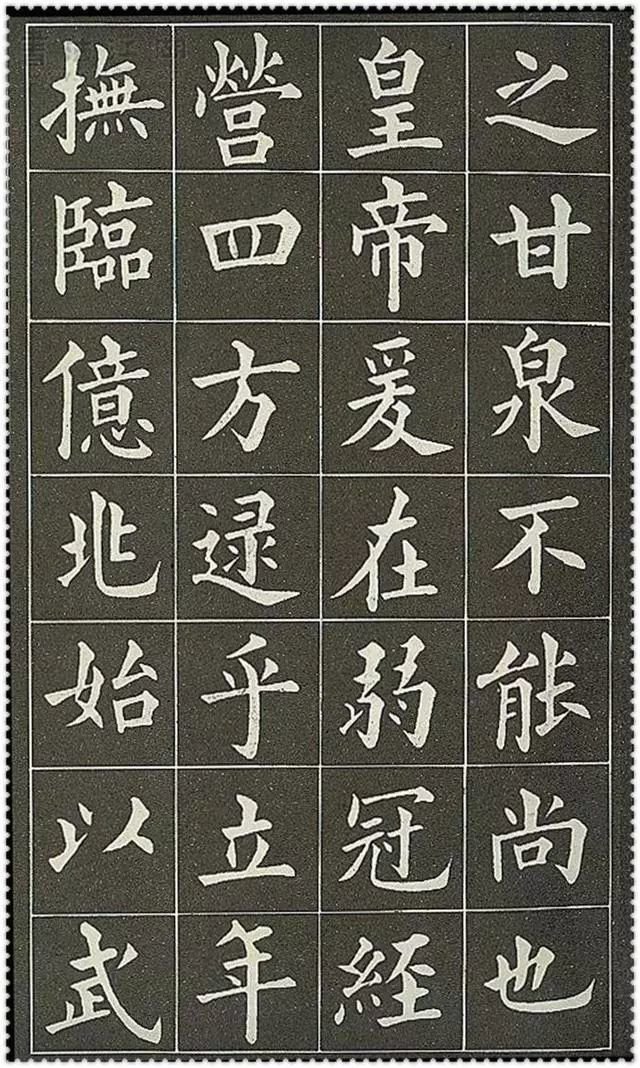 之甘泉不能尚也
皇帝爰在弱冠經
營四方逮乎立年
撫臨億兆始以武